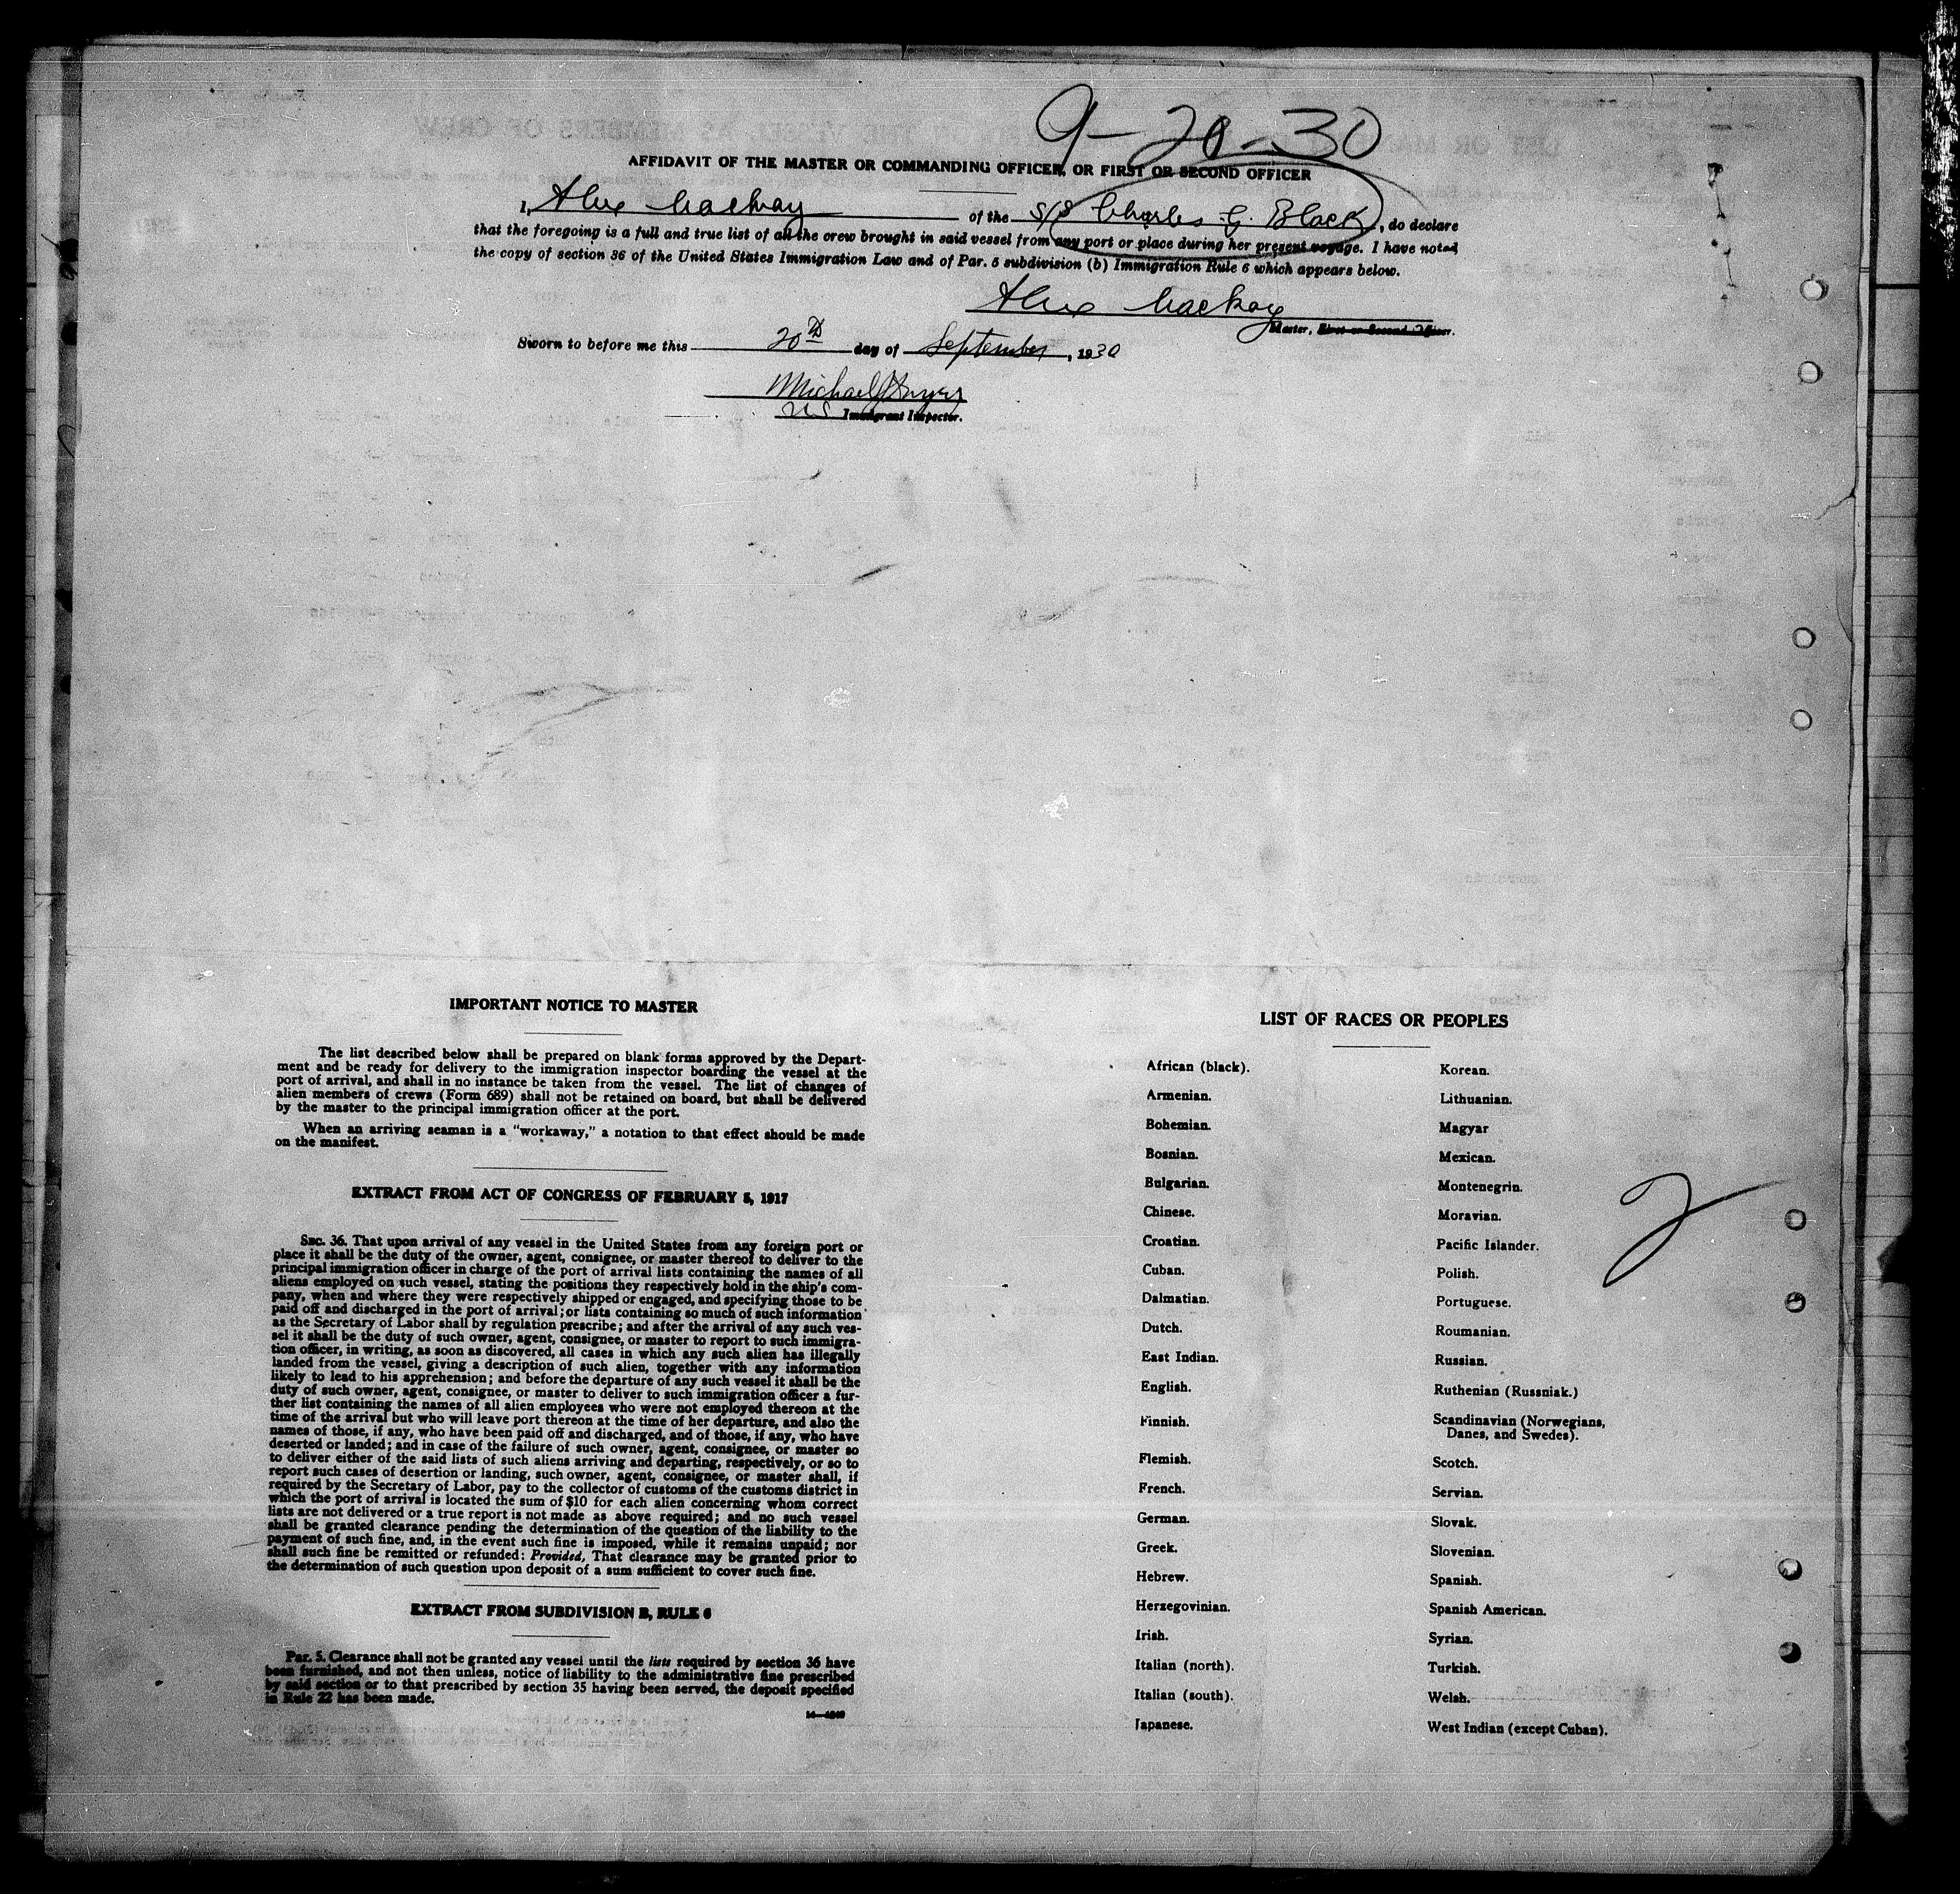 9-20-30
AFFIDAVIT OF THE MASTER OR COMMANDING OFFICER, OR FIRST OR SECOND OFFICER
I, Alex Mackay of the S/S Charles G. Black, do declare
that the foregoing is a full and true list of all the crew brought in said vessel from any port or place during her present voyage. I have noted
the copy of section 36 of the United States Immigration Law and of Par. 5 subdivision (b) Immigration Rule 6 which appears below.
Alex Mackay
Master, First or Second Officer.
Sworn to before me this 20th day of September, 1930
Michael
US Immigrant Inspector.
IMPORTANT NOTICE TO MASTER
The list described below shall be prepared on blank forms approved by the Depart-
ment and be ready for delivery to the immigration inspector boarding the vessel at the
port of arrival, and shall in no instance be taken from the vessel. The list of changes of
alien members of crews (Form 689) shall not be retained on board, but shall be delivered
by the master to the principal immigration officer at the port.
When an arriving seaman is a "workaway," a notation to that effect should be made
on the manifest.
EXTRACT FROM ACT OF CONGRESS OF FEBRUARY 5, 1917
SEC. 36. That upon arrival of any vessel in the United States from any foreign port or
place it shall be the duty of the owner, agent, consignee, or master thereof to deliver to the
principal immigration officer in charge of the port of arrival lists containing the names of all
aliens employed on such vessel, stating the positions they respectively hold in the ship's com-
pany, when and where they were respectively shipped or engaged, and specifying those to be
paid off and discharged in the port of arrival; or lists containing so much of such information
as the Secretary of Labor shall by regulation prescribe; and after the arrival of any such ves-
sel it shall be the duty of such owner, agent, consignee, or master to report to such immigra-
tion officer, in writing, as soon as discovered, all cases in which any such alien has illegally
landed from the vessel, giving a description of such alien, together with any information
likely to lead to his apprehension; and before the departure of any such vessel it shall be the
duty of such owner, agent, consignee, or master to deliver to such immigration officer a fur-
ther list containing the names of all alien employees who were not employed thereon at the
time of the arrival but who will leave port thereon at the time of her departure, and also the
names of those, if any, who have been paid off and discharged, and of those, if any, who have
deserted or landed; and in case of the failure of such owner, agent, consignee, or master so
to deliver either of the said lists of such aliens arriving and departing, respectively, or so to
report such cases of desertion or landing, such owner, agent, consignee, or master shall, if
required by the Secretary of Labor, pay to the collector of customs of the customs district in
which the port of arrival is located the sum of $10 for each alien concerning whom correct
lists are not delivered or a true report is not made as above required; and no such vessel
shall be granted clearance pending the determination of the question of the liability to the
payment of such fine, and, in the event such fine is imposed, while it remains unpaid; nor
shall such fine be remitted or refunded: Provided, That clearance may be granted prior to
the determination of such question upon deposit of a sum sufficient to cover such fine.
EXTRACT FROM SUBDIVISION B, RULE 6
Par. 5. Clearance shall not be granted any vessel until the lists required by section 36 have
been furnished, and not then unless, notice of liability to the administrative fine prescribed
by said section or to that prescribed by section 35 having been served, the deposit specified
in Rule 22 has been made.
LIST OF RACES OR PEOPLES
African (black).
Armenian.
Bohemian.
Bosnian.
Bulgarian.
Chinese.
Croatian.
Cuban.
Dalmatian.
Dutch.
East Indian.
English.
Finnish.
Flemish.
French.
German.
Greek.
Hebrew.
Herzegovinian.
Irish.
Italian (north).
Italian (south).
Japanese.
Korean.
Lithuanian.
Magyar
Mexican.
Montenegrin.
Moravian.
Pacific Islander.
Polish.
Portuguese.
Roumanian.
Russian.
Ruthenian (Russniak.)
Scandinavian (Norwegians,
Danes, and Swedes).
Scotch.
Servian.
Slovak.
Slovenian.
Spanish.
Spanish American.
Syrian.
Turkish.
Welsh.
West Indian (except Cuban).
2